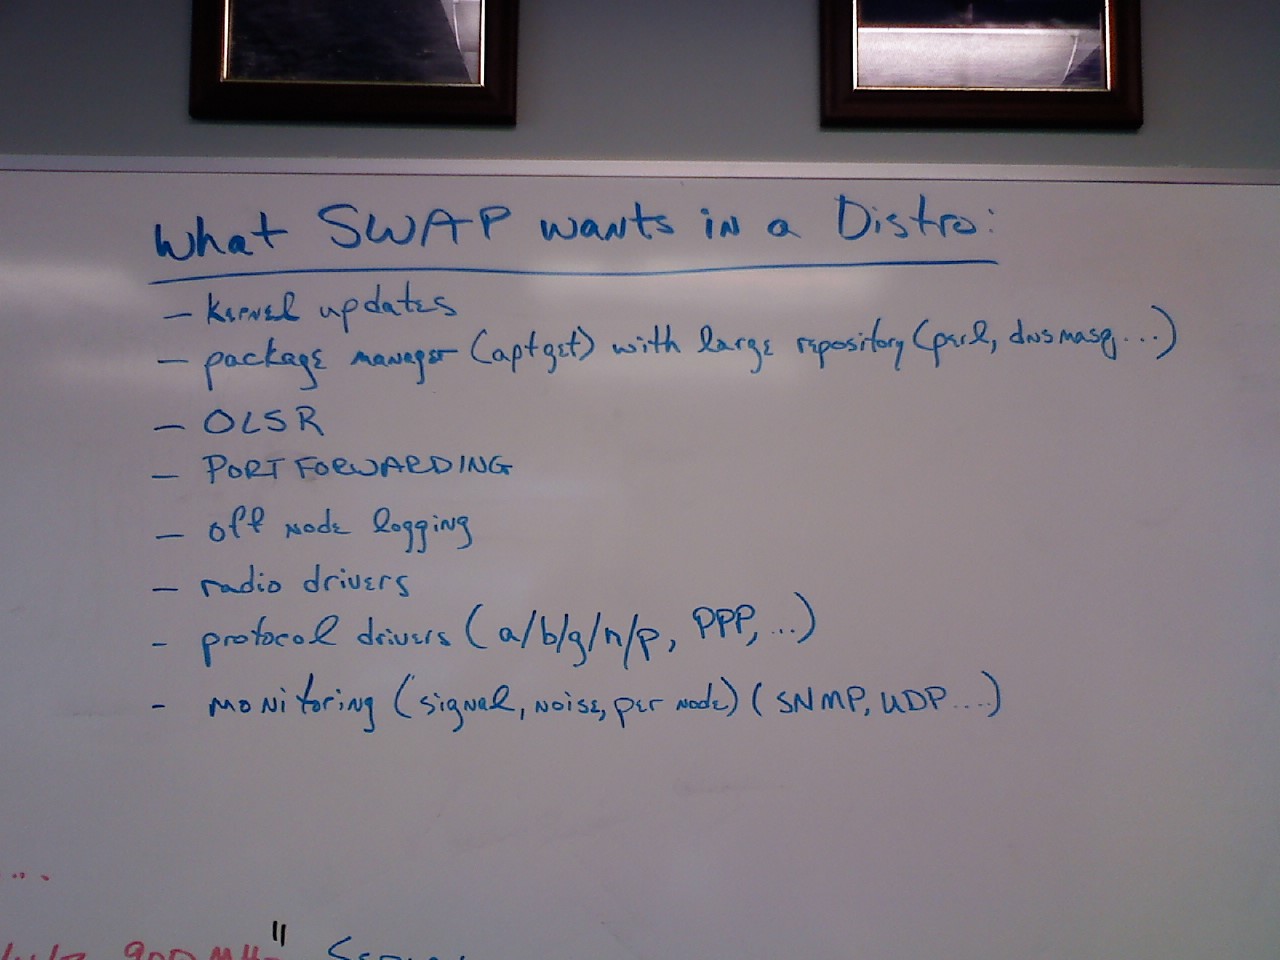 What SWAP wants in a Distro:
- kernel updates
- package manager (aptget) with large repository (perl, dnsmasq...)
- OLSR
- PORT FORWARDING
- off node logging
- radio drivers
- protocol drivers (a/b/g/n/p, PPP, ...)
- monitoring (signal, noise, per node) (SNMP, UDP....)
...
900 MHz "